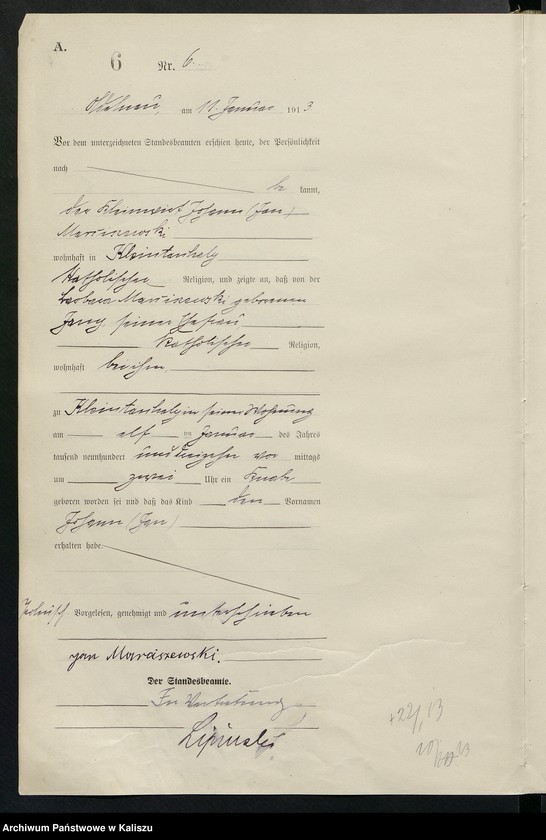 A.
6 Nr. 6.
am 11. Januar 1913
Vor dem unterzeichneten Standesbeamten erschien heute, der Persönlichkeit
nach
be kannt,
der Kleinwirt Johann (Jan)
Marciszewski
wohnhaft in
katholischer Religion, und zeigte an, daß von der
Marciszewski geborenen
seiner Ehefrau
katholischer Religion,
wohnhaft bei ihm,
zu in seiner Wohnung
am elf ten Januar des Jahres
tausend neunhundert und dreizehn vor mittags
um zwei Uhr ein Knabe
geboren worden sei und daß das Kind den Vornamen
Johann (Jan)
erhalten habe.
polnisch Vorgelesen, genehmigt und unterschrieben
Jan Marciszewski.
Der Standesbeamte.
In Vertretung
Lipinski
+22/1 13
Archiwum Państwowe w Kaliszu